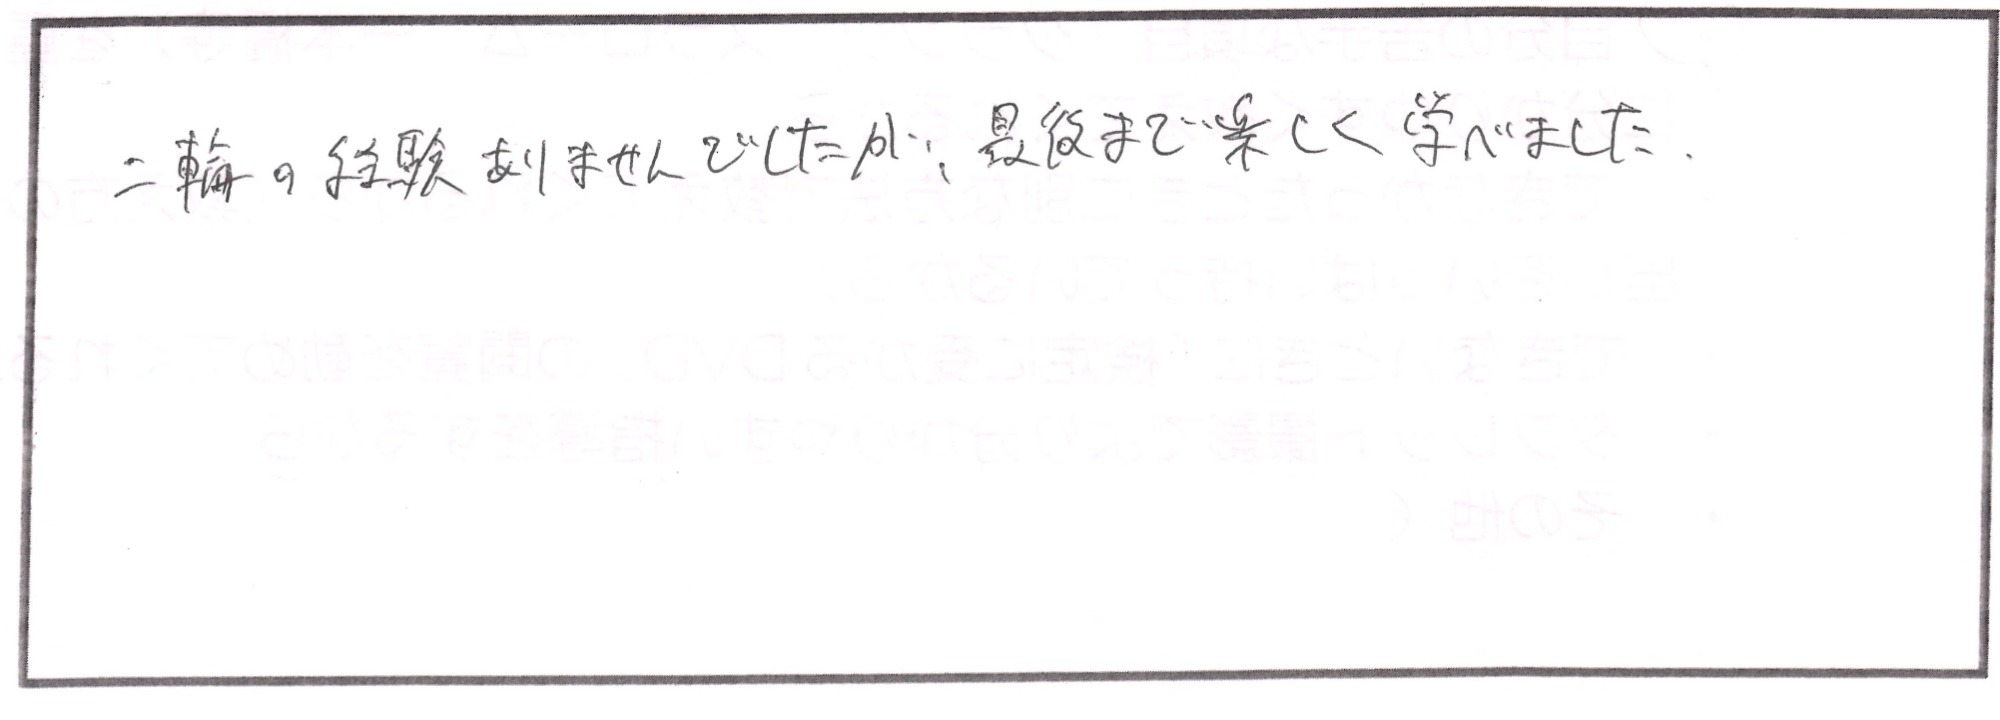 二輪の経験ありませんでしたが、最後まで楽しく学べました.